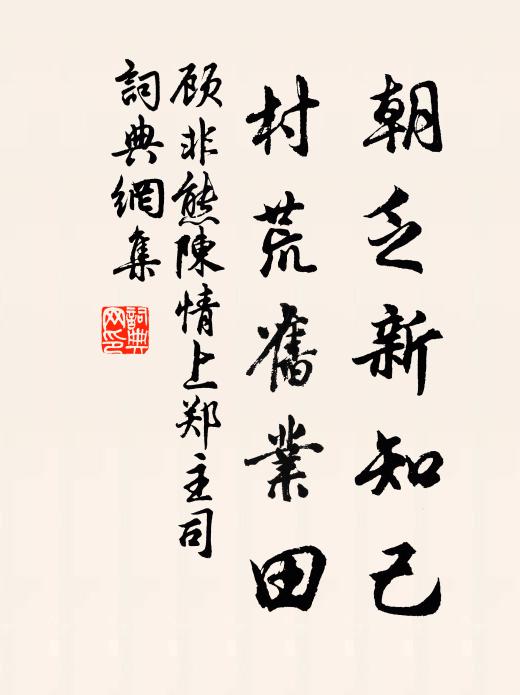 朝乏新知己
村荒舊業田
顾非熊陳情上郑主司
詞典網集
詞典网印